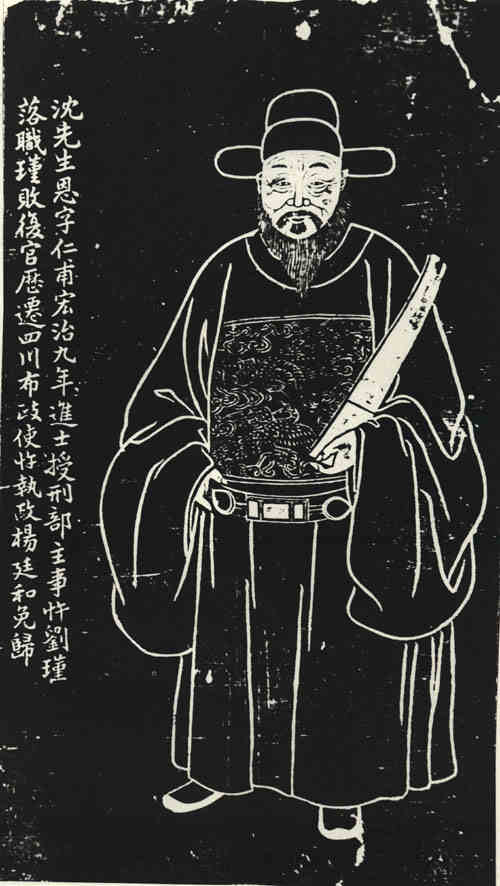 沈先生恩字仁甫宏治九年進士授刑部主事忤劉瑾
落職瑾敗復官歷遷四川布政使忤執政楊廷和免歸